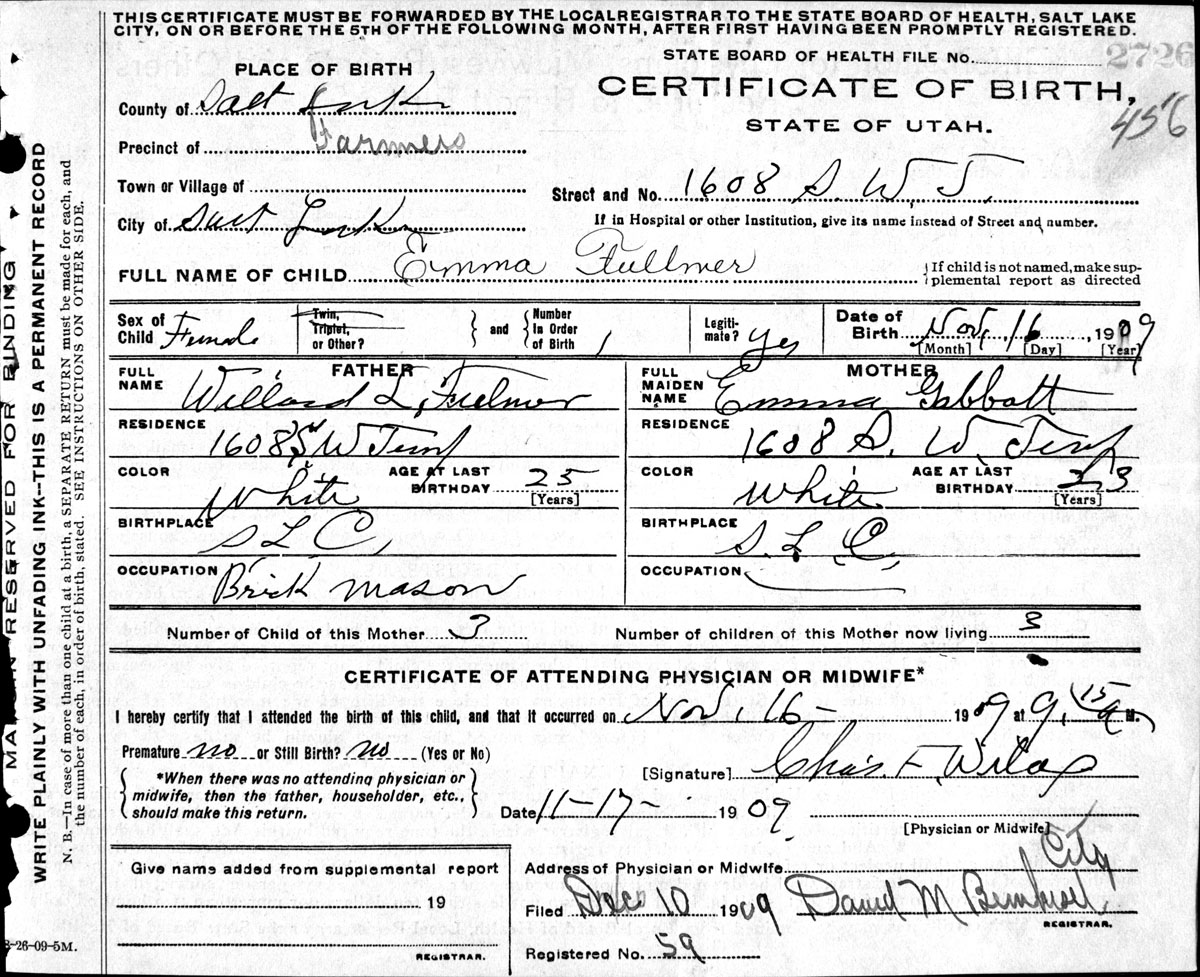 THIS CERTIFICATE MUST BE FORWARDED BY THE LOCAL REGISTRAR TO THE STATE BOARD OF HEALTH, SALT LAKE
CITY, ON OR BEFORE THE 5TH OF THE FOLLOWING MONTH, AFTER FIRST HAVING BEEN PROMPTLY REGISTERED.
STATE BOARD OF HEALTH FILE No. 2726
PLACE OF BIRTH
CERTIFICATE OF BIRTH,
456
County of Salt Lake
STATE OF UTAH.
Precinct of Farmers
Town or Village of
Street and No. 1608 S. W. T.
City of Salt Lake
If in Hospital or other Institution, give its name instead of Street and number.
FULL NAME OF CHILD Emma Fullmer
If child is not named, make sup-
plemental report as directed
Sex of Child Female
Twin, Triplet, or Other?
and
Number In Order of Birth 1
Legiti-mate? Yes
Date of Birth Nov. 16, 1909
[Month] [Day] [Year]
FATHER
FULL NAME Willard L. Fullmer
RESIDENCE 1608 S W Temp
COLOR White
AGE AT LAST BIRTHDAY 25
[Years]
BIRTHPLACE S L C,
OCCUPATION Brick Mason
MOTHER
FULL MAIDEN NAME Emma Gabbott
RESIDENCE 1608 S. W. Temp
COLOR White
AGE AT LAST BIRTHDAY 23
[Years]
BIRTHPLACE S. L. C.
OCCUPATION
Number of Child of this Mother 3
Number of children of this Mother now living 3
CERTIFICATE OF ATTENDING PHYSICIAN OR MIDWIFE*
I hereby certify that I attended the birth of this child, and that it occurred on Nov. 16- 1909 at 9,15 a M.
Premature no or Still Birth? no (Yes or No)
*When there was no attending physician or
midwife, then the father, householder, etc.,
should make this return.
[Signature] Chas. F. Wilcox
Date 11-17- 1909
[Physician or Midwife]
Give name added from supplemental report
19
REGISTRAR.
Address of Physician or Midwife City
Filed Dec 10 1909 David M
REGISTRAR.
Registered No. 59
3-26-09-5M.
MARGIN RESERVED FOR BINDING
WRITE PLAINLY WITH UNFADING INK--THIS IS A PERMANENT RECORD
N. B.—In case of more than one child at a birth, a SEPARATE RETURN must be made for each, and
the number of each, in order of birth, stated. SEE INSTRUCTIONS ON OTHER SIDE.